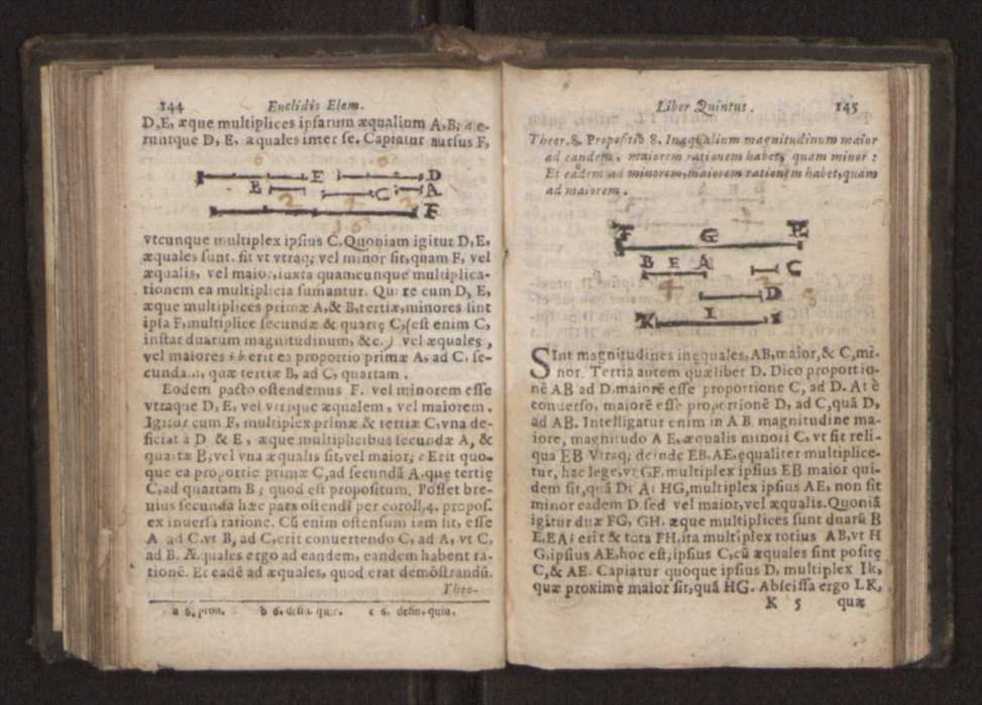 144 Euclidis Elem.
D,E, æque multiplices ipsarum æqualium A,B; a e-
runtque D, E, æquales inter se. Capiatur rursus F,
E D
B C A
F
vtcunque multiplex ipsius C. Quoniam igitur D, E,
æquales sunt, fit vt vtraq; vel minor sit, quam F, vel
æqualis, vel maior, iuxta quamcunque multiplica-
tionem ea multiplicia sumantur. Quare cum D, E,
æque multiplices primæ A, & B, tertiæ, minores sint
ipsa F, multiplice secundæ & quartę C, (est enim C,
instar duarum magnitudinum, &c.) vel æquales,
vel maiores : b erit ea proportio primæ A, ad C, se-
cundam, quæ tertiæ B, ad C, quartam.
Eodem pacto ostendemus F. vel minorem esse
vtraque D, E, vel vtrique æqualem, vel maiorem.
Igitur cum F, multiplex primæ & tertiæ C, vna de-
ficiat à D & E, æque multiplicibus secundæ A, &
quartæ B, vel vna æqualis sit, vel maior; c Erit quo-
que ea proportio primæ C, ad secundã A, quę tertię
C, ad quartam B; quod est propositum. Posset bre-
uius secunda hæc pars ostendi per coroll. 4. propos.
ex inuersa ratione. Cũ enim ostensum iam sit, esse
A ad C, vt B, ad C, erit conuertendo C, ad A, vt C,
ad B. Æquales ergo ad eandem, eandem habent ra-
tionẽ. Et eadẽ ad æquales, quod erat demõstrandũ.
Theo-
a 6. pron. b 6. defin. quin. c 6. defin. quin.
Liber Quintus. 145
Theor. 8. Propositio 8. Inæqualium magnitudinum maior
ad eandem, maiorem rationem habet, quam minor :
Et eadem ad minorem, maiorem rationem habet, quam
ad maiorem.
F G H
B E A C
D
K I L
SInt magnitudines inæquales, AB, maior, & C, mi-
nor. Tertia autem quælibet D. Dico proportio-
nẽ AB ad D. maiorẽ esse proportione C, ad D. At è
conuerso, maiorẽ esse proportionẽ D, ad C, quã D,
ad AB. Intelligatur enim in AB. magnitudine ma-
iore, magnitudo A E, æqualis minori C, vt sit reli-
qua EB Vtraq; deinde EB. AE. ęqualiter multiplice-
tur, hac lege, vt GF. multiplex ipsius EB maior qui-
dem sit, quã D: At HG, multiplex ipsius AE, non sit
minor eadem D. sed vel maior, vel æqualis. Quoniã
igitur duæ FG, GH. æque multiplices sunt duarũ B
E, EA; erit & tota FH. ita multiplex totius AB, vt H
G. ipsius AE, hoc est, ipsius C, cũ æquales sint positę
C, & AE. Capiatur quoque ipsius D, multiplex Ik,
quæ proxime maior sit, quã HG. Abscissa ergo LK,
K 5 quæ